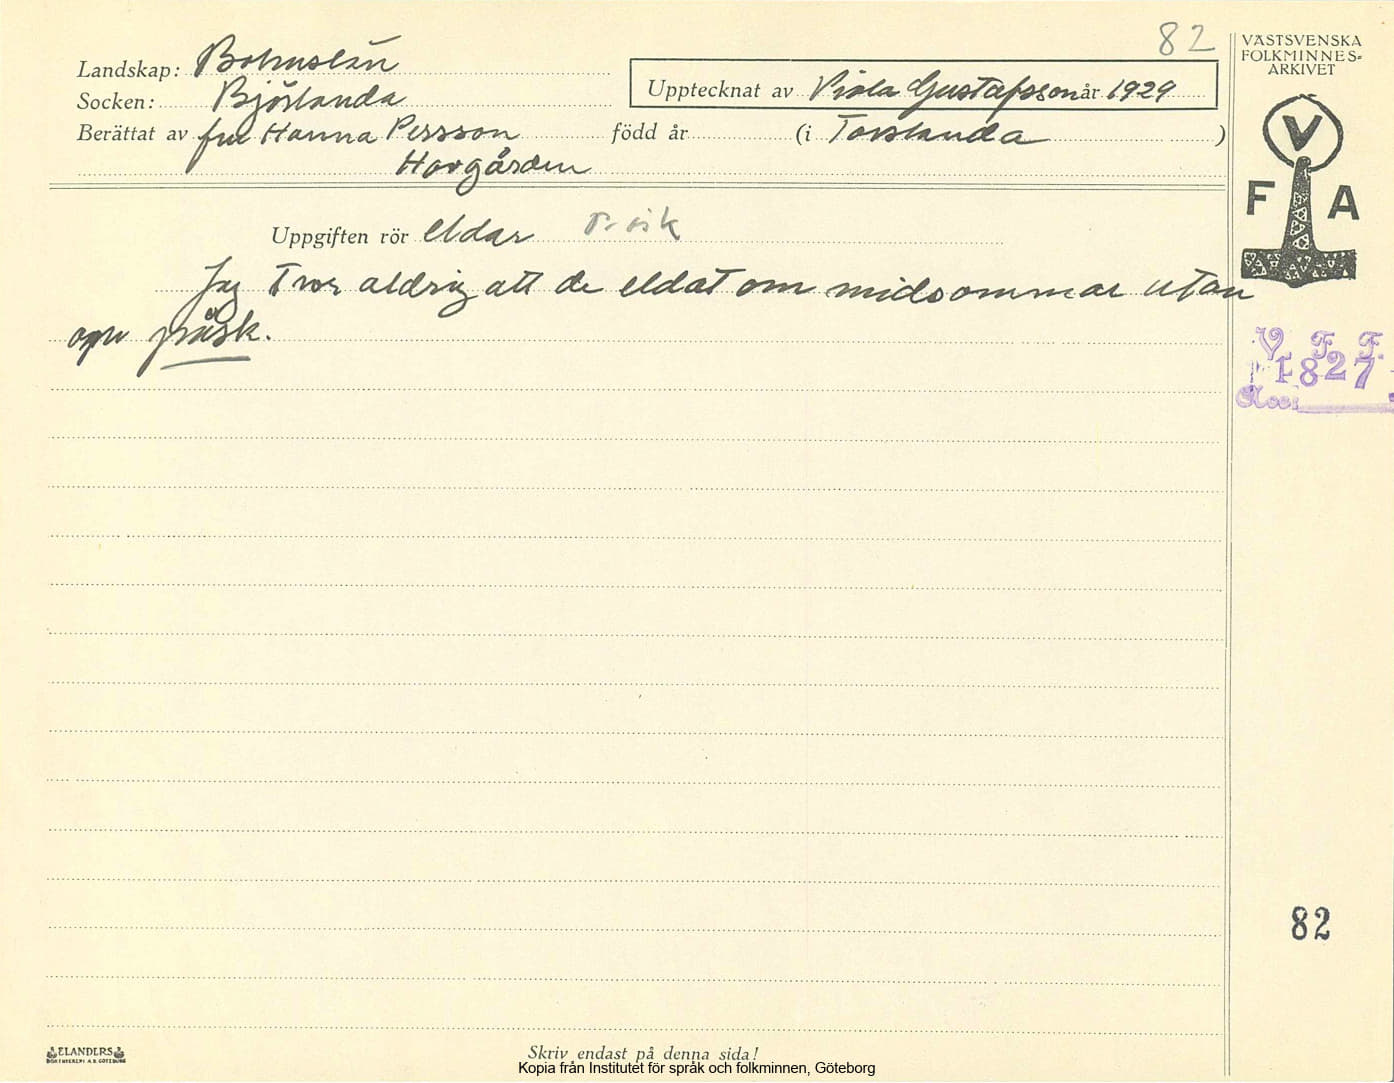 82
VÄSTSVENSKA
FOLKMINNES=
ARKIVET
Landskap: Bohuslän
Socken: Björlanda
Upptecknat av Viola Gustafsson år 1929
Berättat av fru Hanna Persson född år (i Torslanda )
Horgården
V
F A
Uppgiften rör eldar Påsk
Jag tror aldrig att de eldat om midsommar utan
om påsk.
V. F. F.
1827
82
ELANDERS
BOKTRYCKERI A.B. GÖTEBORG
Skriv endast på denna sida!
Kopia från Institutet för språk och folkminnen, Göteborg